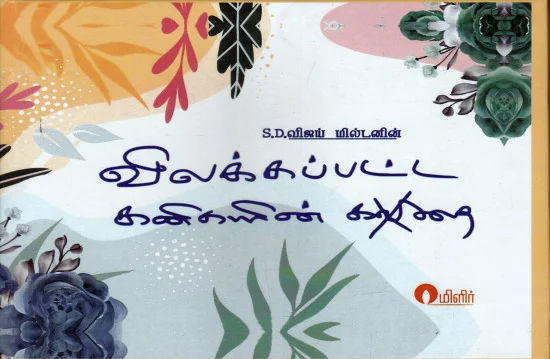 S.D.விஜய் மில்டனின்
விலக்கப்பட்ட
கனிகளின்
மிளிர்